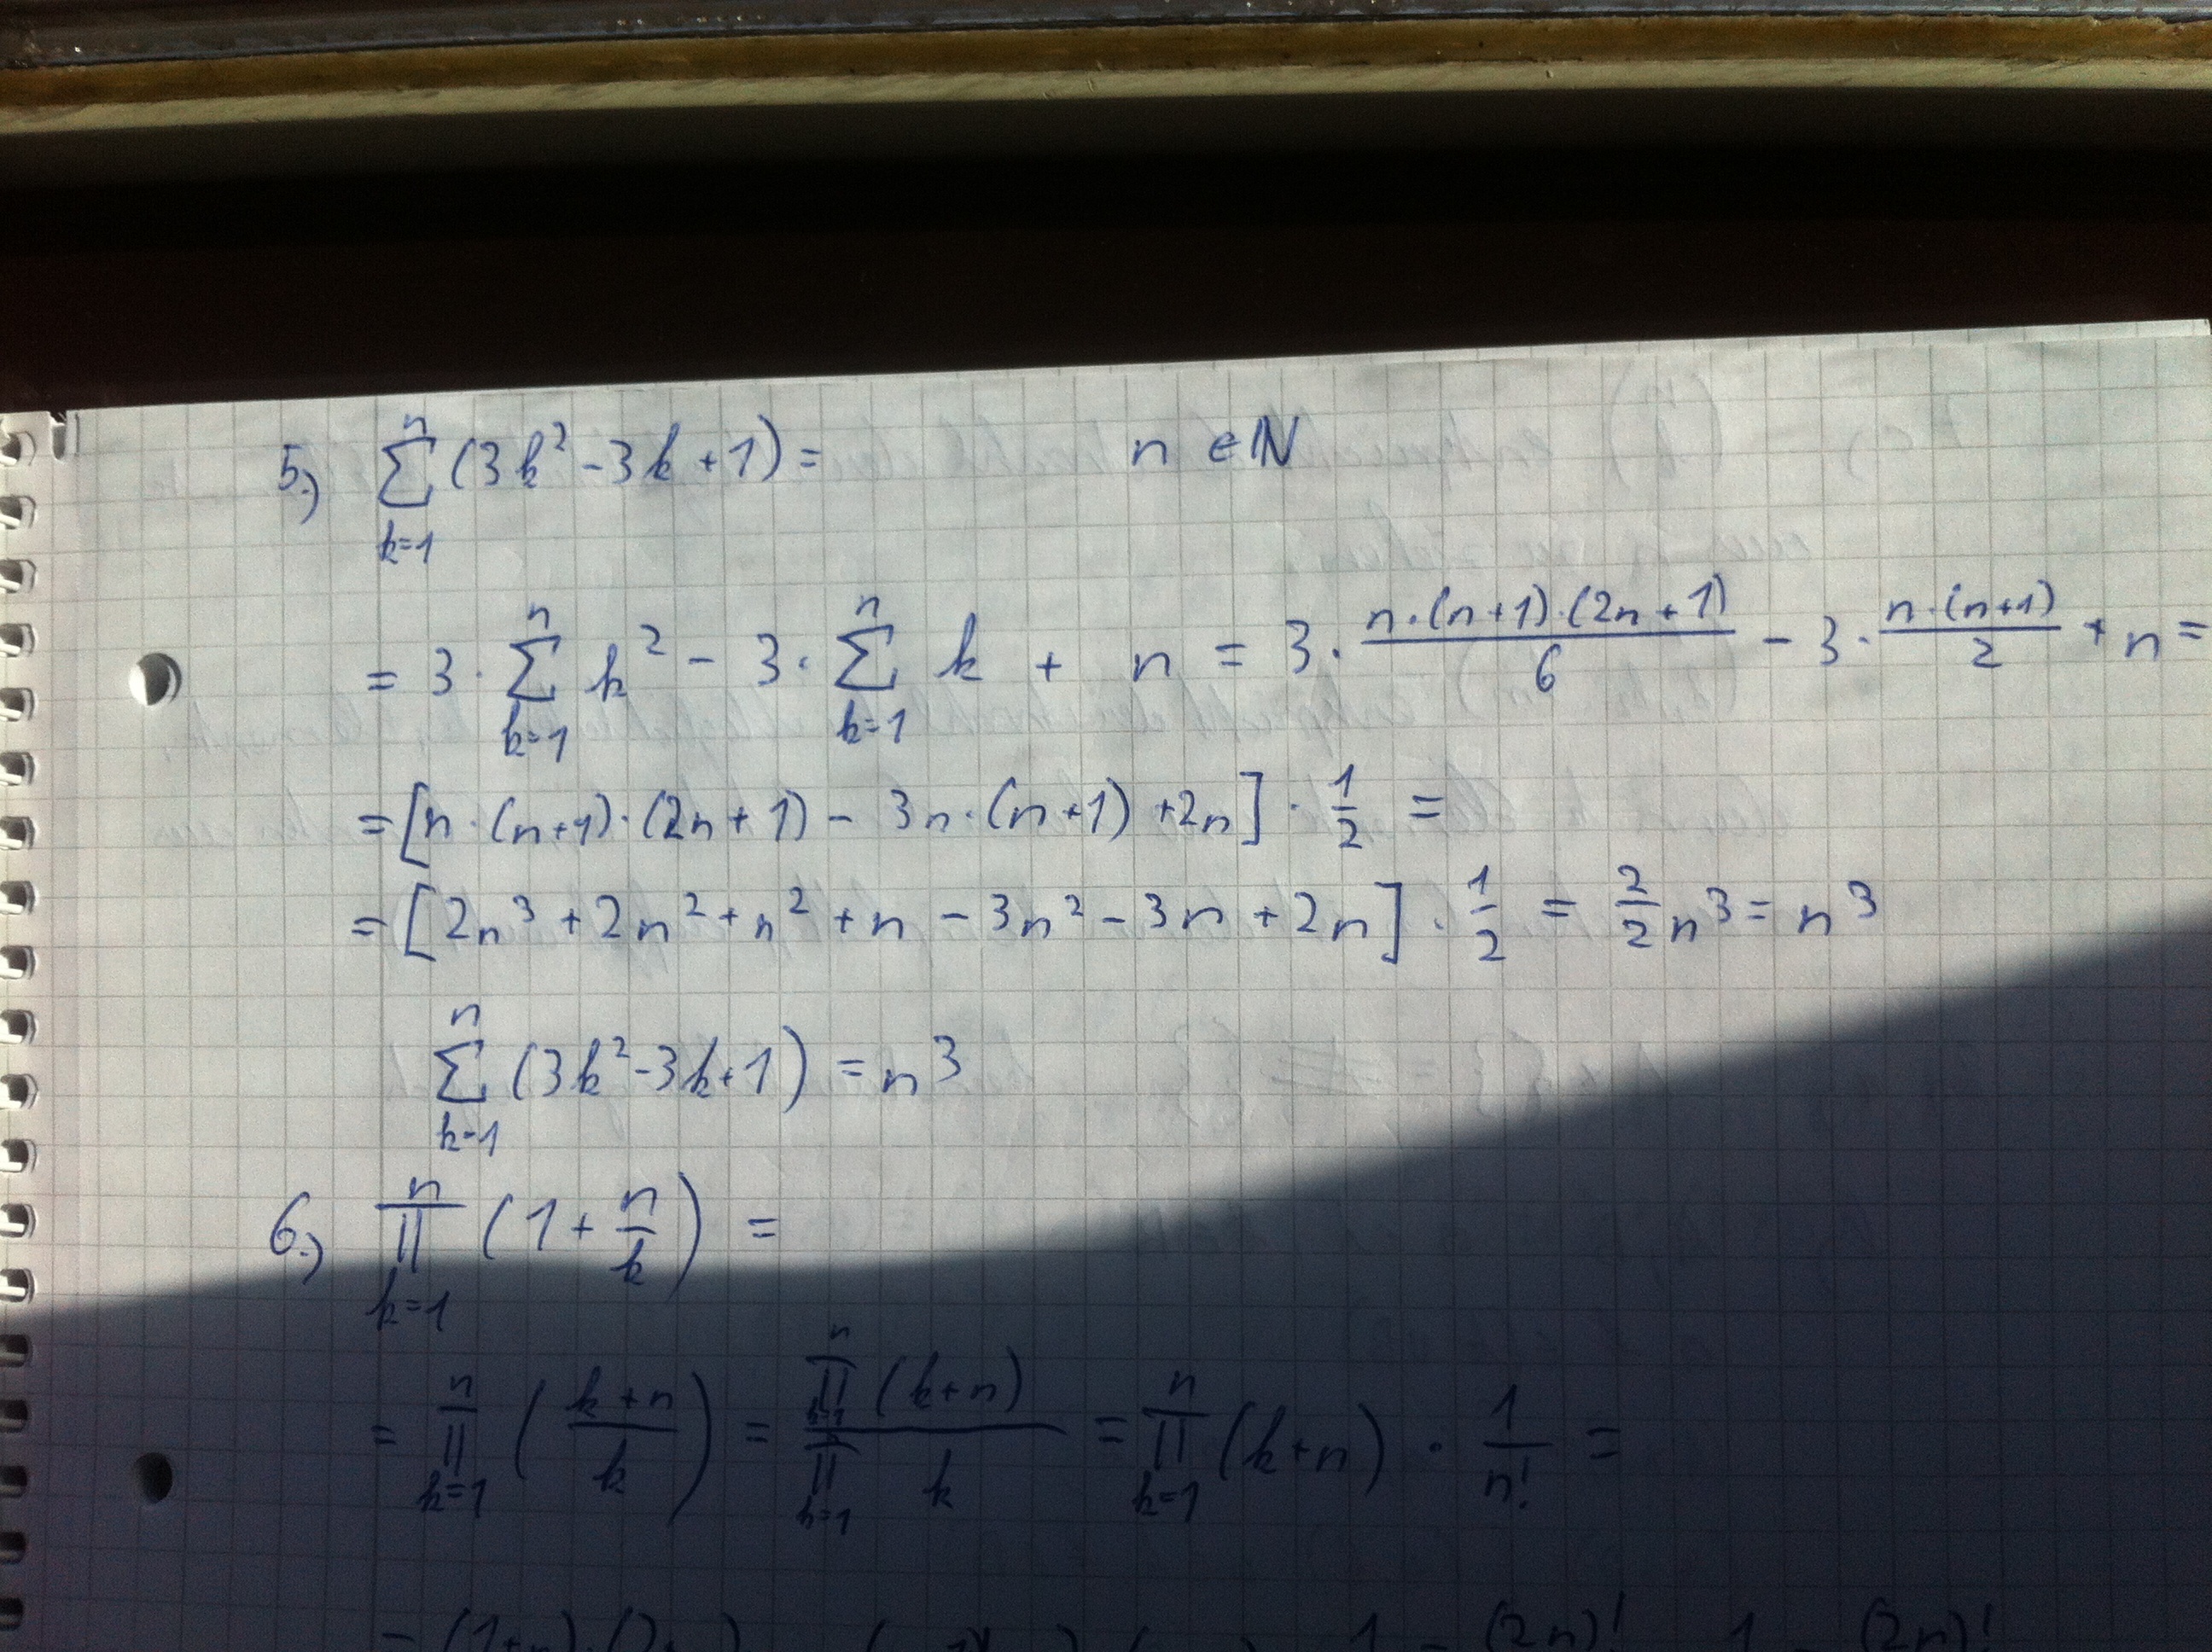 5.) $\sum_{k=1}^{n} (3k^2 - 3k + 1) =$ $n \in \mathbb{N}$
$= 3 \cdot \sum_{k=1}^{n} k^2 - 3 \cdot \sum_{k=1}^{n} k + n = 3 \cdot \frac{n \cdot (n+1) \cdot (2n+1)}{6} - 3 \cdot \frac{n \cdot (n+1)}{2} + n =$
$= [n \cdot (n+1) \cdot (2n+1) - 3n \cdot (n+1) + 2n] \cdot \frac{1}{2} =$
$= [2n^3 + 2n^2 + n^2 + n - 3n^2 - 3n + 2n] \cdot \frac{1}{2} = \frac{2}{2} n^3 = n^3$
$\sum_{k=1}^{n} (3k^2 - 3k + 1) = n^3$
6.) $\prod_{k=1}^{n} (1 + \frac{n}{k}) =$
$= \prod_{k=1}^{n} (\frac{k+n}{k}) = \frac{\prod_{k=1}^{n} (k+n)}{\prod_{k=1}^{n} k} = \prod_{k=1}^{n} (k+n) \cdot \frac{1}{n!} =$